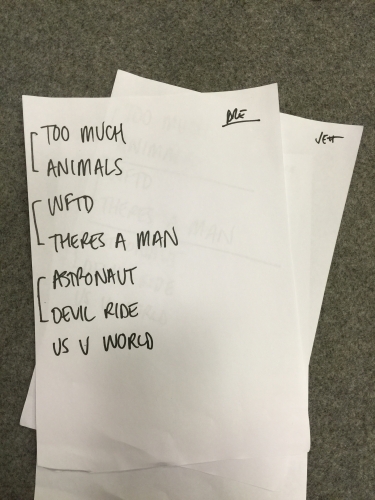 BRE
JETT
TOO MUCH
ANIMALS
WFTD
THERES A MAN
ASTRONAUT
DEVIL RIDE
US V WORLD